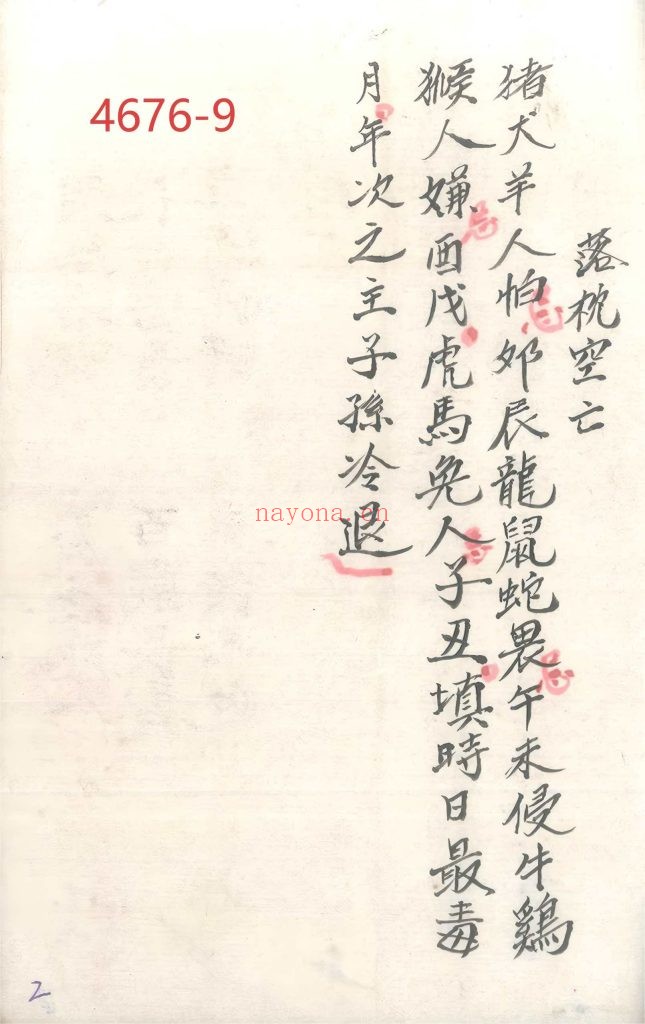 4676-9
落枕空亡
猪犬羊人怕卯辰龍鼠蛇畏午未侵牛鷄
猴人嫌酉戌虎馬兔人子丑填時日最毒
月年次之主子孫冷退
忌
忌
忌
忌
nayona.cn
2